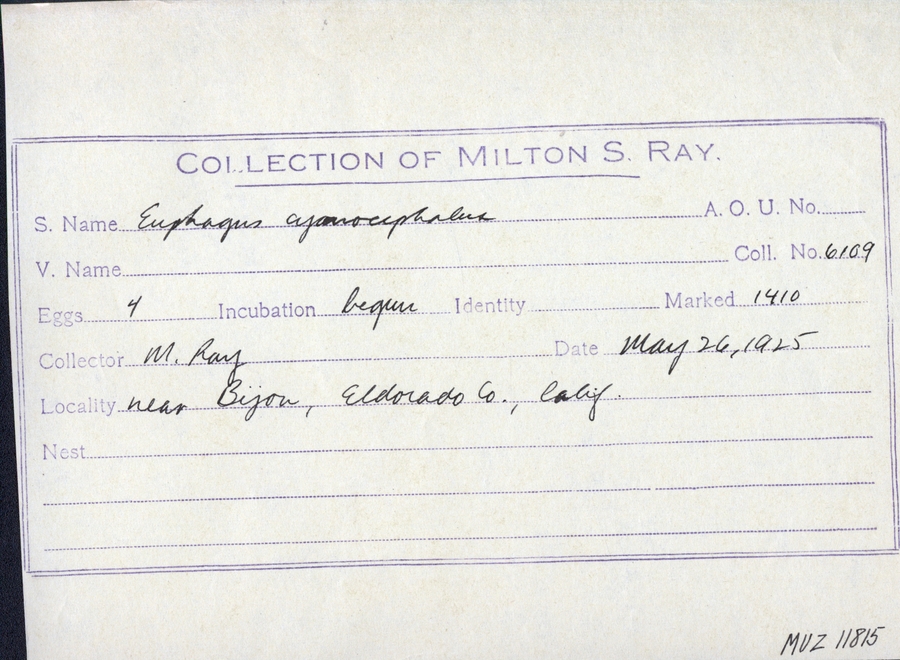 COLLECTION OF MILTON S. RAY.
S. Name Euphagus cyanocephalus A. O. U. No.
V. Name Coll. No. 6109
Eggs 4 Incubation begun Identity Marked 1410
Collector M. Ray Date May 26, 1925
Locality near Bijou, Eldorado Co., Calif.
Nest
MVZ 11815